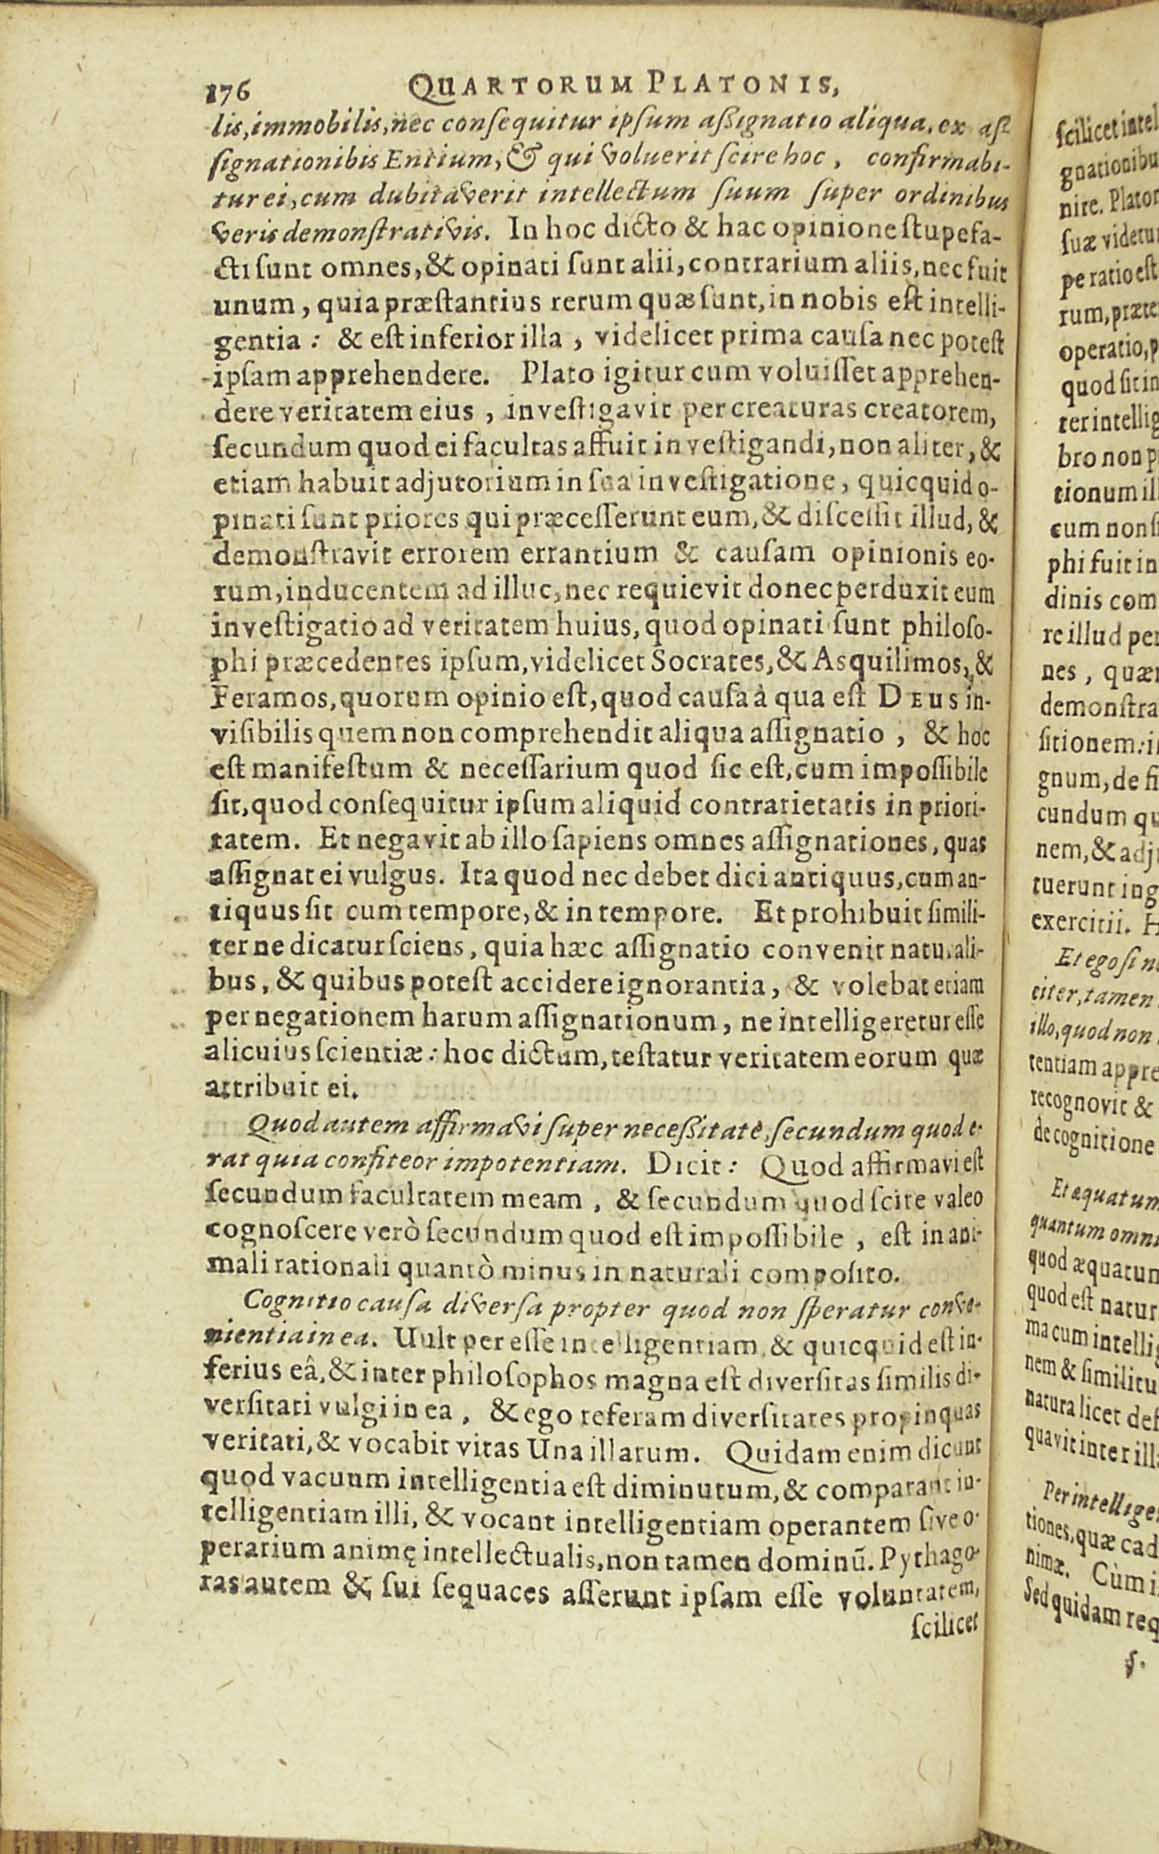 176 QUARTORUM PLATONIS,
lis, immobilis, nec consequitur ipsum assignatio aliqua, ex as-
signationibis Entium, & qui voluerit scire hoc, confirmabi-
tur ei, cum dubitaverit intellectum suum super ordinibus
veris demonstrativis. In hoc dicto & hac opinione stupefa-
cti sunt omnes, & opinati sunt alii, contrarium aliis, nec fuit
unum, quia præstantius rerum quæ sunt, in nobis est intelli-
gentia: & est inferior illa, videlicet prima causa nec potest
ipsam apprehendere. Plato igitur cum voluisset apprehen-
dere veritatem eius, investigavit per creaturas creatorem,
secundum quod ei facultas affuit investigandi, non aliter, &
etiam habuit adjutorium in sua investigatione, quicquid o-
pinati sunt priores qui præcesserunt eum, & discessit illud, &
demonstravit errorem errantium & causam opinionis eo-
rum, inducentem ad illuc, nec requievit donec perduxit eum
investigatio ad veritatem huius, quod opinati sunt philoso-
phi præcedentes ipsum, videlicet Socrates, & Asquilimos, &
Feramos, quorum opinio est, quod causa à qua est DEUS in-
visibilis quem non comprehendit aliqua assignatio, & hoc
est manifestum & necessarium quod sic est, cum impossibile
sit, quod consequitur ipsum aliquid contrarietatis in priori-
tatem. Et negavit ab illo sapiens omnes assignationes, quas
assignat ei vulgus. Ita quod nec debet dici antiquus, cum an-
tiquus sit cum tempore, & in tempore. Et prohibuit simili-
ter ne dicatur sciens, quia hæc assignatio convenit naturali-
bus, & quibus potest accidere ignorantia, & volebat etiam
per negationem harum assignationum, ne intelligeretur esse
alicuius scientiæ: hoc dictum, testatur veritatem eorum quæ
attribuit ei.
Quod autem affirmavi super necessitatē, secundum quod e-
rat quia confiteor impotentiam. Dicit: Quod affirmavi est
secundum facultatem meam, & secundum quod scire valeo
cognoscere verò secundum quod est impossibile, est in ani-
mali rationali quantò minus in naturali composito.
Cognitio causa diversa propter quod non speratur conve-
nientia in ea. Uult per esse intelligentiam, & quicquid est in-
ferius eâ, & inter philosophos magna est diversitas similis di-
versitati vulgi in ea, & ego referam diversitates propinquas
veritati, & vocabit vitas Una illarum. Quidam enim dicunt
quod vacuum intelligentia est diminutum, & comparant in-
telligentiam illi, & vocant intelligentiam operantem sive o-
perarium animę intellectualis, non tamen dominū. Pythago-
ras autem & sui sequaces asserunt ipsam esse voluntatem,
scilicet
scilicet intel
gnationibu
nire. Plator
suæ videtur
pe ratio est
rum, præte
operatio, p
quod sit in
ter intellig
bro non p
tionum il
cum non s
phi fuit in
dinis com
re illud per
nes, quær
demonstra
sitionem: i
gnum, de fi
cundum qu
nem, & adj
tuerunt ing
exercitii. H
Et ego si n
citer, tamen
illo, quod non
tentiam appre
recognovit &
de cognitione
Et æquatum
quantum omni
quod æquatum
quod est natur
ma cum intellig
nem & similitu
natura licet def
quavit inter ill
Per intellige
tiones, quæ cad
nimæ. Cùm i
Sed quidam req